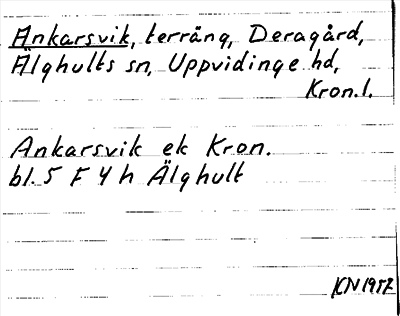 Ankarsvik, terräng, Deragård,
Älghults sn, Uppvidinge hd,
Kron.l.
Ankarsvik ek Kron.
bl. 5 F 4 h Älghult
KN 1957